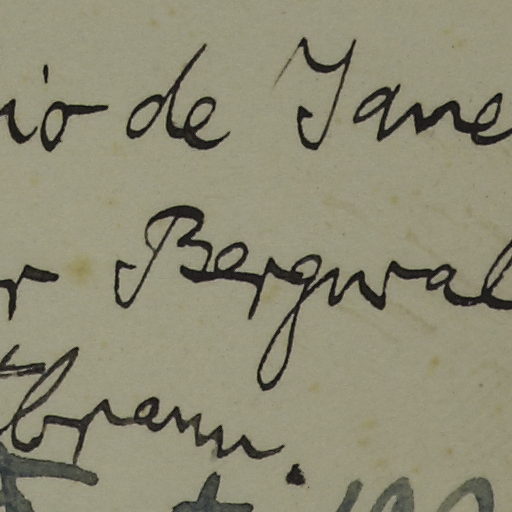 io de Jane
r Bergwal
tbrann.